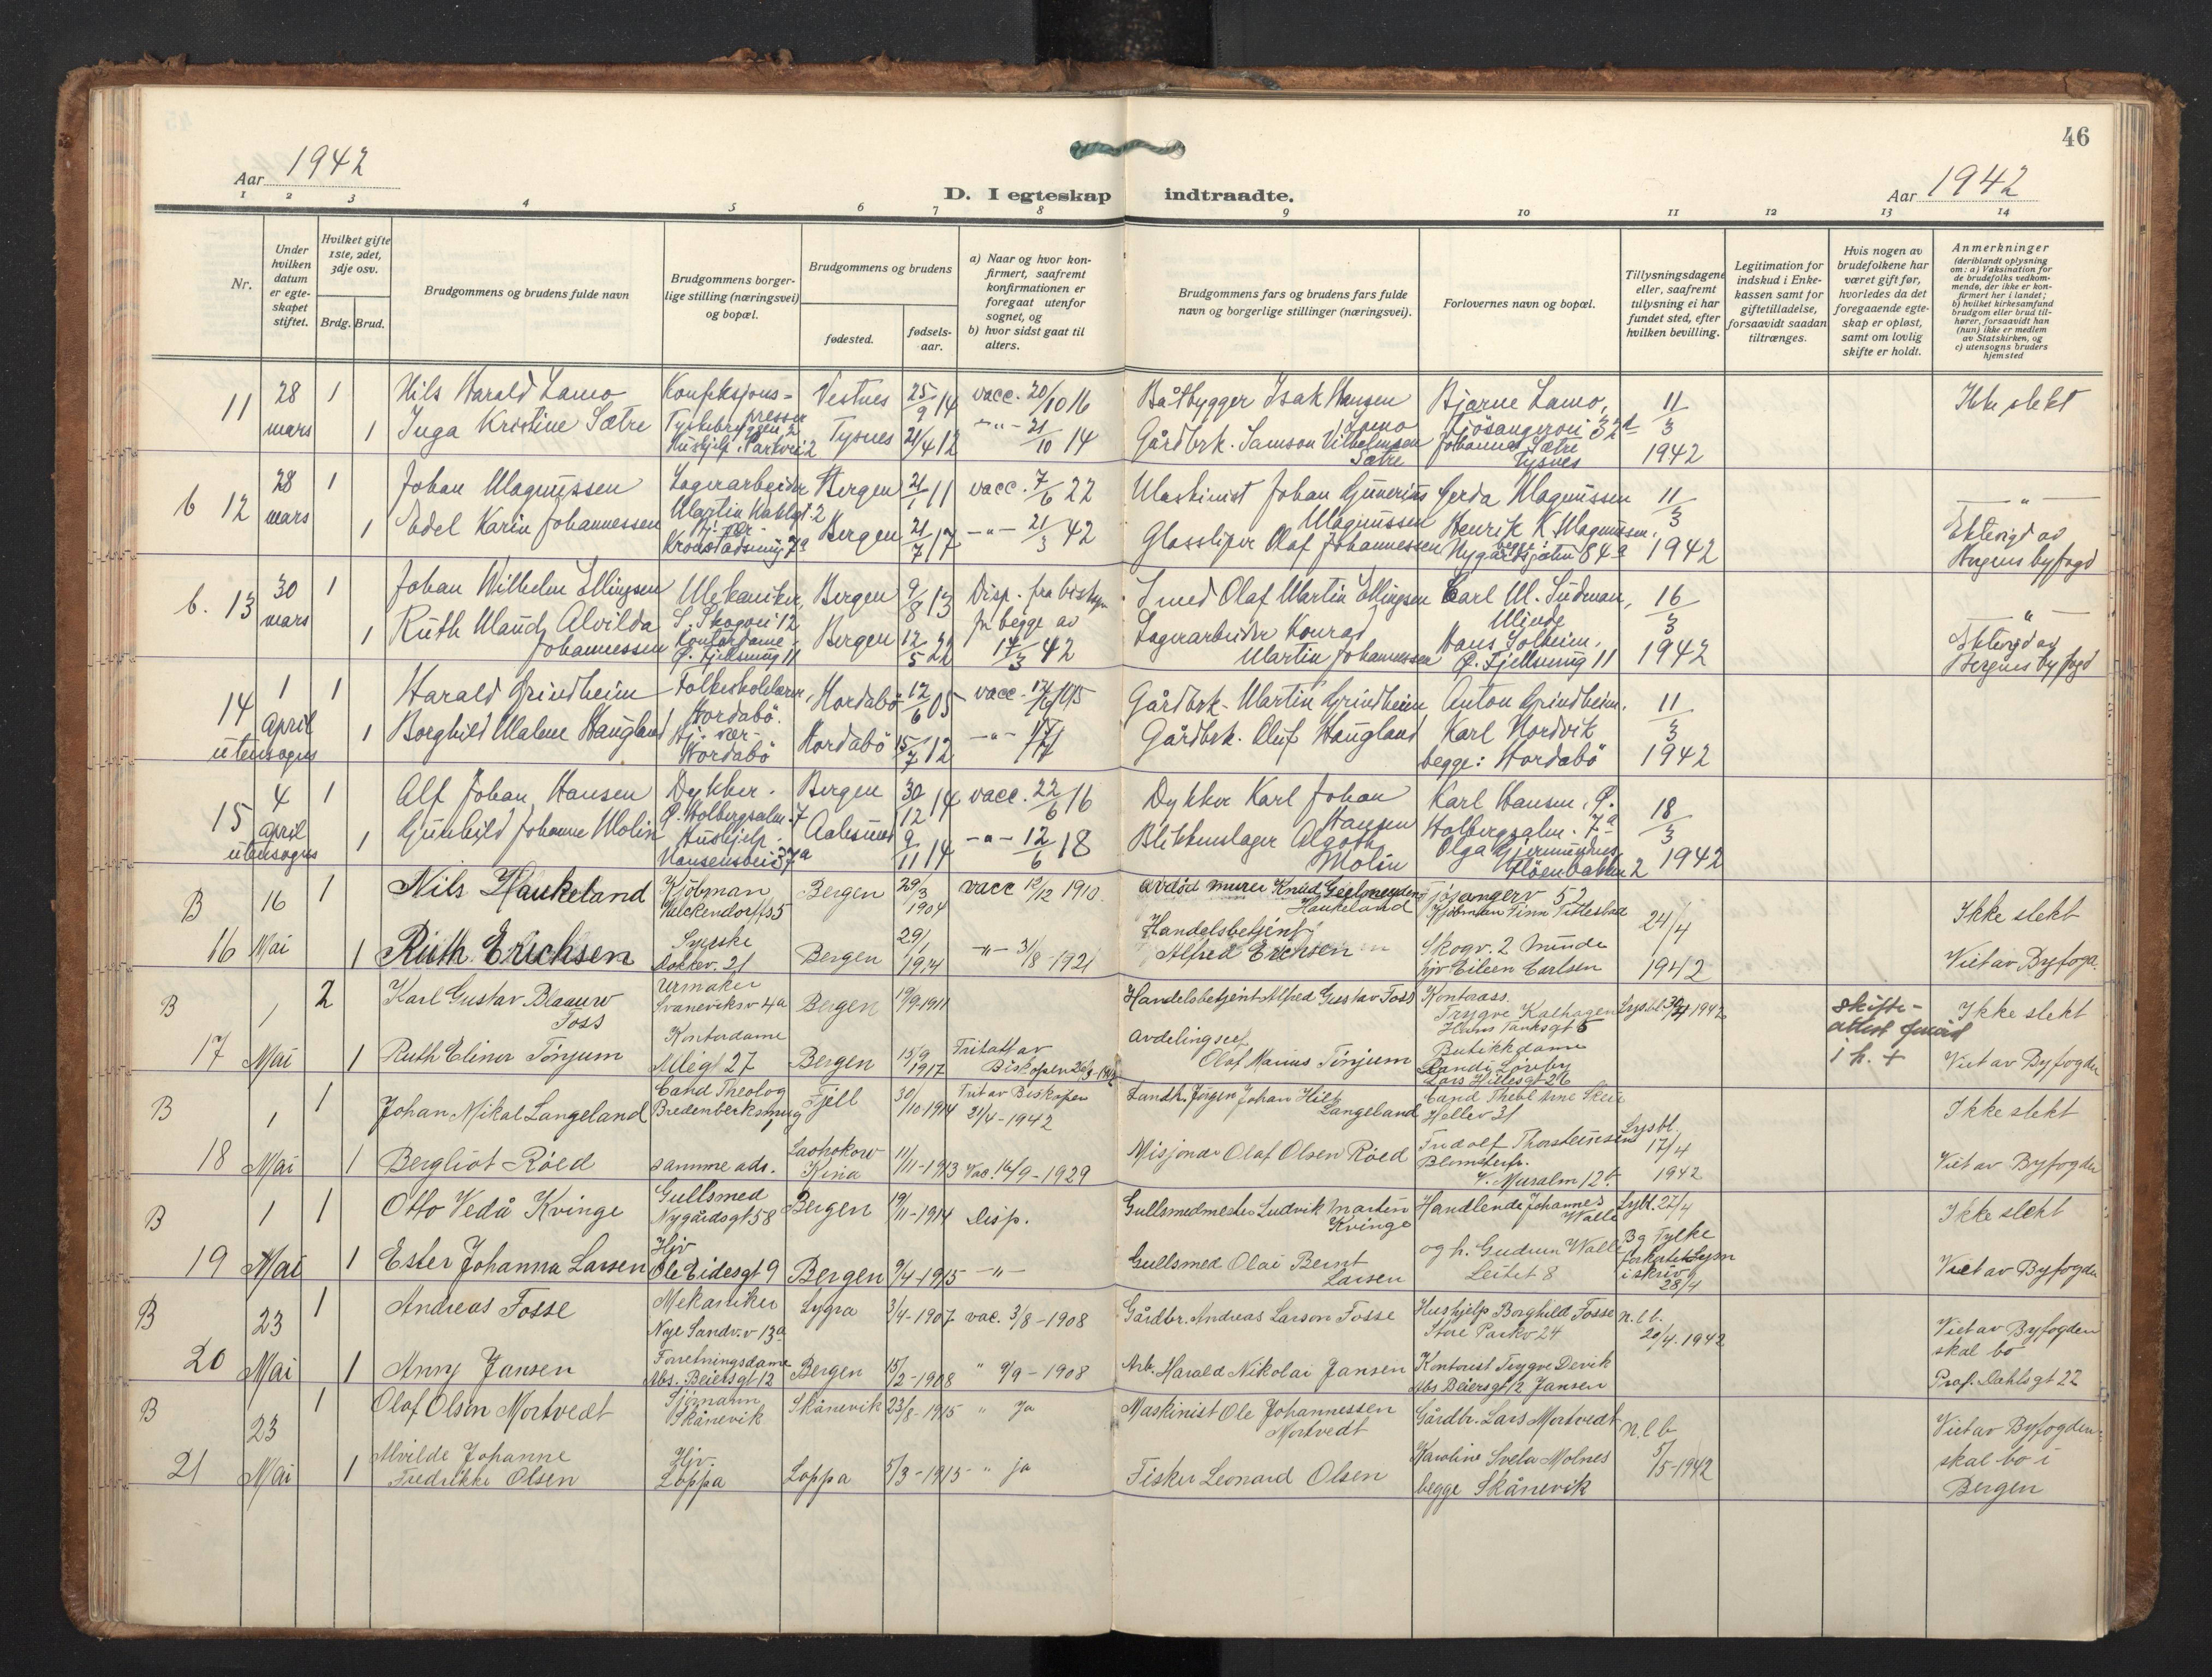 46
Aar 1942
D. I egteskap indtraadte.
Aar 1942
1 2 3 4 5 6 7 8 9 10 11 12 13 14
Nr.
Under hvilken datum er egte-skapet stiftet.
Hvilket gifte 1ste, 2det, 3dje osv.
Brdg. Brud.
Brudgommens og brudens fulde navn
Brudgommens borger-lige stilling (næringsvei) og bopæl.
Brudgommens og brudens
fødested.
fødsels-aar.
a) Naar og hvor kon-firmert, saafremt konfirmationen er foregaat utenfor sognet, og
b) hvor sidst gaat til alters.
Brudgommens fars og brudens fars fulde navn og borgerlige stillinger (næringsvei).
Forlovernes navn og bopæl.
Tillysningsdagene eller, saafremt tillysning ei har fundet sted, efter hvilken bevilling.
Legitimation for indskud i Enke-kassen samt for giftetilladelse, forsaavidt saadan tiltrænges.
Hvis nogen av brudefolkene har været gift før, hvorledes da det foregaaende egte-skap er opløst, samt om lovlig skifte er holdt.
Anmerkninger
(deriblandt oplysning om: a) Vaksination for de brudefolks vedkom-mende, der ikke er kon-firmert her i landet;
b) hvilket kirkesamfund brudgom eller brud til-hører, forsaavidt han (hun) ikke er medlem av Statskirken, og
c) utensogns bruders hjemsted
11 28 mars 1 Nils Harald Lamo Konfeksjons-presser Tyskebryggen 2 Vestnes 25/9 14 vacc. 20/10 16 Båtbygger Isak Hansen Lamo Bjarne Lamo, 11/3 1942 Ikke slekt
1 Inga Kristine Sætre Hushjelp. Parkvei 2 Tysnes 21/4 12 -"- 21/10 14 Gårdbrk. Samson Vilhelmsen Sætre Johannes Sætre Tysnes
b 12 28 mars 1 Johan Magnussen Lagerarbeider Bergen 21/1 11 vacc. 7/6 22 Maskinist Johan Gunerius Magnussen Gerda Magnussen 11/3 1942 - " -
1 Edel Karin Johannessen Hj. vær- Kronstadsmug 7a Bergen 21/7 17 -"- 21/3 42 Glassliper Olaf Johannessen Henrik K. Magnussen, Nygårdsgaten 84a Ektevigd av Bergens byfogd
b. 13 30 mars 1 Johan Wilhelm Ellingsen Mekaniker, S. Skogvei 12 Bergen 9/8 13 Disp. fra biskopen for begge av 17/3 42 Smed Olaf Martin Ellingsen Carl M. Sudman, Minde 16/3 1942 - " -
1 Ruth Maudy Alvilda Johannessen Kontordame, Ø. Fjellsmug 11 Bergen 12/5 22 Lagerarbeider Konrad Martin Johannessen Hans Solheim. Ø. Fjellsmug 11 Ektevigd av Bergens byfogd
14 1 April utensogns 1 Harald Grindheim Folkeskolelærer, Hordabö. Hordabö 12/6 05 vacc. Gårdbrk. Martin Grindheim Anton Grindheim. 11/3 1942
1 Borghild Malene Haugland Hj. vær- Hordabö Hordabö 15/7 12 -"- Gårdbrk. Oluf Haugland Karl Nordvik begge: Hordabö
15 4 April utensogns 1 Alf Johan Hansen Dykker. Ø. Holbergsalm. 7 Bergen 30/12 14 vacc. 22/6 16 Dykker Karl Johan Hansen Karl Hansen, Ø. Holbergsalm. 7a 18/3 1942
1 Gunhild Johanne Molin Hushjelp. Aalesund 9/11 14 -"- 12/6 18 Blikkenslager Algoth Molin Olga Fløenbakken 2
B 16 16 Mai 1 Nils Haukeland Kjöbman Valckendorffs 5 Bergen 29/3 1904 vacc 19/12 1910. avdöd murer Knud Geelmuyden Haukeland Fjøsangerv 52 Kjöbman Finn Titlestad 24/4 1942 Ikke slekt
1 Ruth Erichsen Syerske Dokkev. 21 Bergen 29/1 1914 -"- 3/8 1921 Handelsbetjent Alfred Erichsen Skogv. 2 Minde hjv Eileen Carlsen Viet av Byfogd.
B 17 1 Mai 2 Karl Gustav Blaauw Foss Urmaker Svaneviksv 4a Bergen 19/9 1911 Handelsbetjent Alfred Gustav Foss Kontorass. Trygve Kalhagen Hans Tanksgt 5 Lysbl. 30/4 1942 skifte-attest i h. + Ikke slekt
1 Ruth Elinor Tönjum Kontordame Allégt 27 Bergen 15/9 1917 Fritatt av Biskopen Avdelingssef Olaf Marius Tönjum Butikkdame Randi Lars Hillesgt 26 Viet av Byfogden
B 18 1 Mai 1 Johan Nikal Langeland Cand Theolog Bredenbecksmug Fjell 30/10-1914 Frit av Biskopen 21/4-1942 Landh. Jörgen Johan Hilt Langeland Cand Theol Arne Skeie Hellev 31 Lysbl. 17/4 1942 Ikke slekt
1 Bergliot Röed samme adr. Laohokow Kina 11/11-1913 Vac. 16/9-1929 Misjonær Olaf Olsen Röed Fridolf Thorsteinsen Blomsterfr. V. Muralm 12b. Viet av Byfogden
B 19 1 Mai 1 Otto Vedå Kvinge Gullsmed Nygårdsgt 58 Bergen 19/11-1914 Disp. Gullsmedmester Ludvik Martin Kvinge Handlende Johannes Walle Lysbl. 27/4 Ikke slekt
1 Ester Johanna Larsen Hjv Ole Eidesgt 9 Bergen 9/4-1915 -"- Gullsmed Olai Bernt Larsen og h. Gudrun Walle Leitet 8 Bg Fylke forkortet Lysn iskriv 28/4 Viet av Byfogden
B 20 23 Mai 1 Andreas Fosse Mekaniker Nye Sandv. v 13a Lygra 3/4-1907 vac. 3/8-1908 Gårdbr. Andreas Larson Fosse Hushjelp Borghild Fosse Store Parkv 24 n.l.b. 20/4. 1942 Viet av Byfogden skal bo
1 Anny Jansen Forretningsdame Abs. Beiersgt 12 Bergen 15/2-1908 " 9/9-1908 Arb. Harald Nikolai Jansen Kontorist Trygve Devik Jansen Abs Beiersgt 12 Prof. Dahlsgt 22
B 21 23 Mai 1 Olaf Olsen Mortvedt Sjömann Skånevik Skånevik 23/8-1915 " ja Maskinist Ole Johannessen Mortvedt Gårdbr. Lars Mortvedt n.l.b 5/5-1942 Viet av Byfogden
1 Alvilde Johanne Fredrikke Olsen Hjv. Loppa Loppa 5/3-1915 - " ja Fisker Leonard Olsen Karoline Svela Molnes begge Skånevik skal bo i Bergen